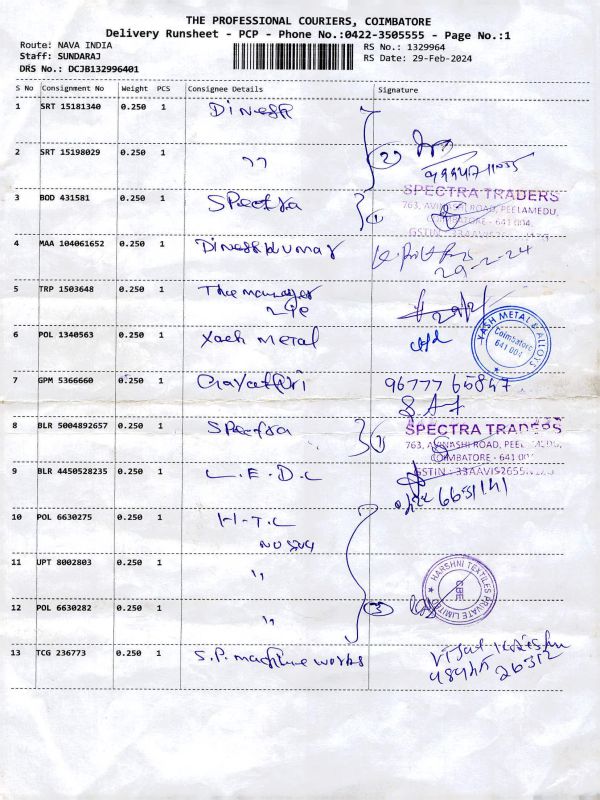 THE PROFESSIONAL COURIERS, COIMBATORE
Delivery Runsheet - PCP - Phone No.:0422-3505555 - Page No.:1
Route: NAVA INDIA
RS No.: 1329964
Staff: SUNDARAJ
RS Date: 29-Feb-2024
DRS No.: DCJB132996401
S No Consignment No Weight PCS Consignee Details Signature
1 SRT 15181340 0.250 1 Dinesh
2 SRT 15198029 0.250 1 ,, 2
3 BOD 431581 0.250 1 Spectra 1
SPECTRA TRADERS
763, AVINASHI ROAD, PEELAMEDU,
COIMBATORE - 641 004
4 MAA 104061652 0.250 1 Dineshkumar
29-2-24
5 TRP 1503648 0.250 1 The manager
29/2
6 POL 1340563 0.250 1 Yash Metal
YASH METAL & ALLOYS
Coimbatore
641 004
7 GPM 5366660 0.250 1 Gayathri 96777 65847
8 BLR 5004892657 0.250 1 Spectra 1
SPECTRA TRADERS
763, AVINASHI ROAD, PEELAMEDU,
COIMBATORE - 641 004
9 BLR 4450528235 0.250 1 L.E.D.C
10 POL 6630275 0.250 1 H.T.L
11 UPT 8002803 0.250 1 ,,
12 POL 6630282 0.250 1 ,, 3
HARSHNI TEXTILES PRIVATE LIMITED
CBE
13 TCG 236773 0.250 1 S.P. machine works
26312